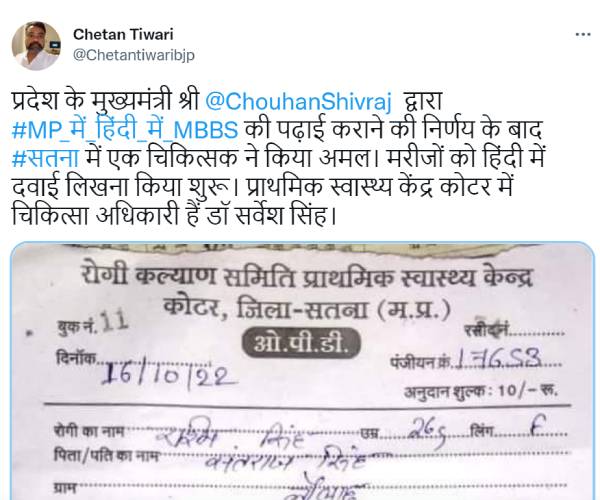 Chetan Tiwari
@Chetantiwaribjp
प्रदेश के मुख्यमंत्री श्री @ChouhanShivraj द्वारा
#MP_में_हिंदी_में_MBBS की पढ़ाई कराने की निर्णय के बाद
#सतना में एक चिकित्सक ने किया अमल। मरीजों को हिंदी में
दवाई लिखना किया शुरू। प्राथमिक स्वास्थ्य केंद्र कोटर में
चिकित्सा अधिकारी हैं डॉ सर्वेश सिंह।
रोगी कल्याण समिति प्राथमिक स्वास्थ्य केन्द्र
कोटर, जिला-सतना (म.प्र.)
बुक नं. 11
रसीद नं.............
ओ.पी.डी.
दिनाँक 16/10/22
पंजीयन क्रं. 17653
अनुदान शुल्क: 10/- रू.
रोगी का नाम रश्मि सिंह उम्र 26 लिंग F
पिता/पति का नाम सिंह
ग्राम